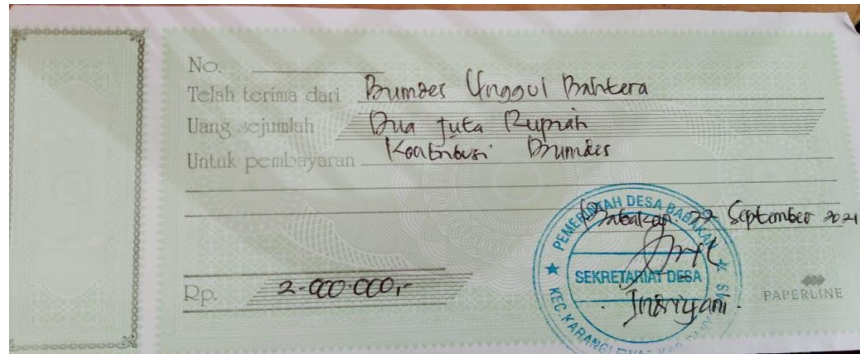 No.
Telah terima dari Bumdes Unggul Bahtera
Uang sejumlah Dua Juta Rupiah
Untuk pembayaran Kontribusi Bumdes
Babakan 22 September 2021
PEMERINTAH DESA BABAKAN
SEKRETARIAT DESA
Indriyani.
Rp. 2.000.000,-
PAPERLINE